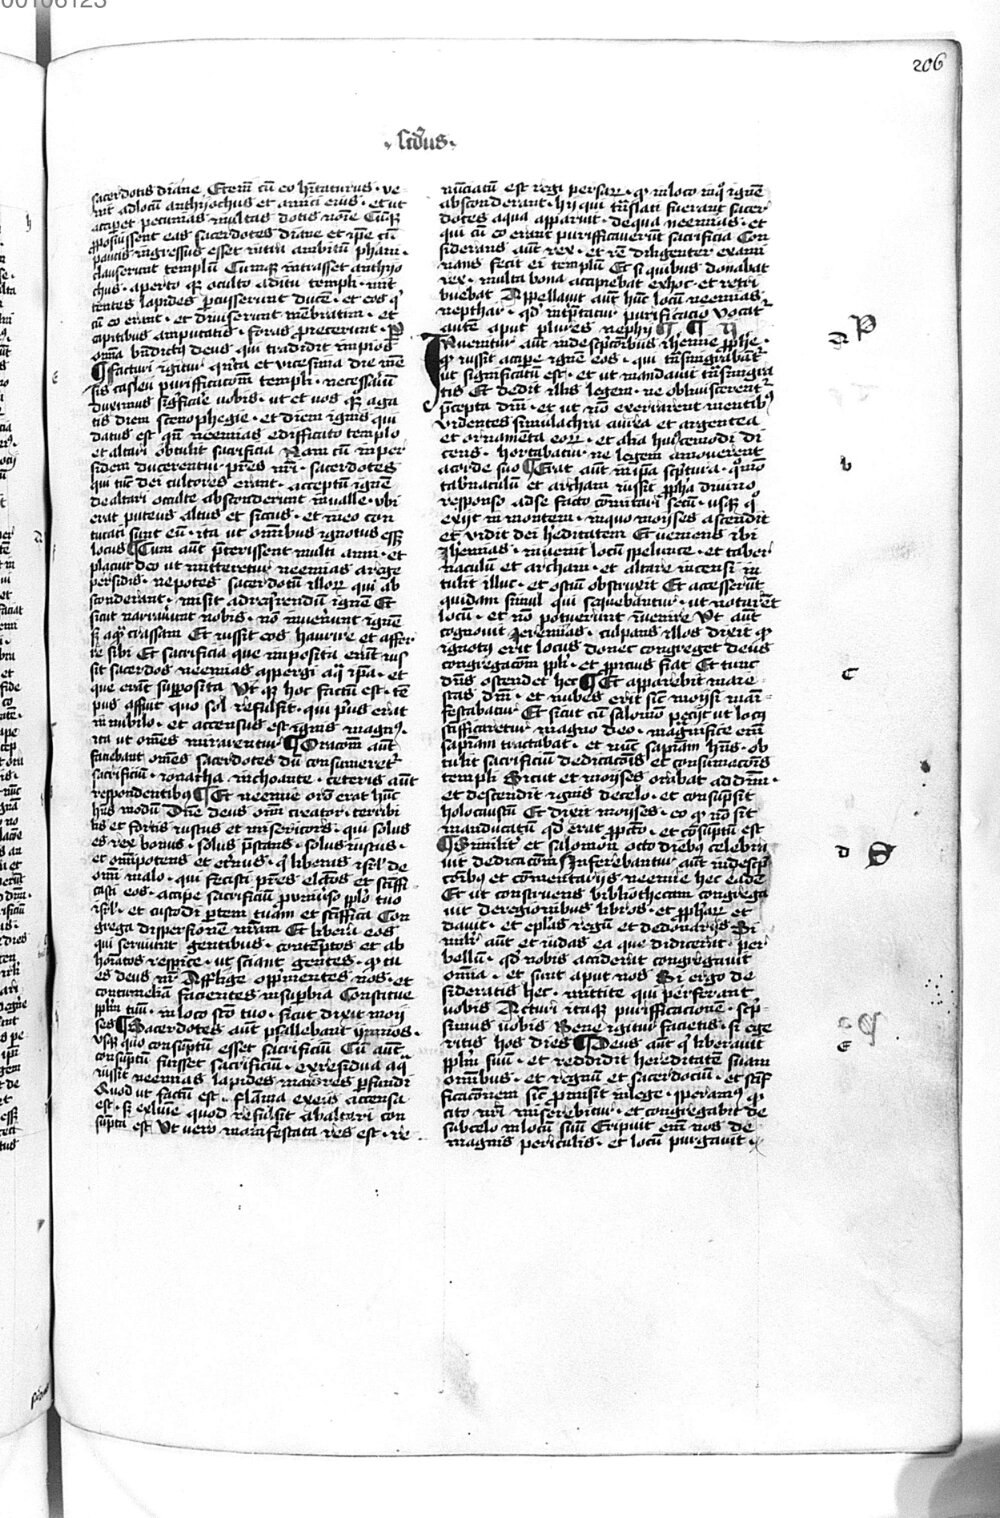 206
· scd̄us ·
sacerdotis diane Etem̄ cū eo h̄itaturus · ve
nit ad locū anthyochus et amici eius · et ut
accip̄et pecunias multas dotis noīe Cūqꝫ
ꝓposuissent eas sacerdotes diane et ip̄e cū
paucis ingressus esset intra ambitū phani ·
clauserunt templū Cumqꝫ intrasset anthyo
chus · aperto qꝫ occulto aditu templi · mit
tentes lapides ꝑcusserunt ducē · et eos q̇
cū eo erant · et diuiserunt mēbratim · et
capitibus amputatis · foras proiecerunt · P̱
om̄ia bn̄dictꝯ deus qui tradidit impios
¶ facturi igitur q̇nta et vicesima die mē
sis casleu purifficacōm templi · necessariū
duximus significare uobis · ut et uos qꝫ aga
tis diem scenophegie · et diem ignis qui
datus est qn̄ neemias edifficato templo
et altari obtulit sacrificia Nam cū in per
sidem ducerentur pr̄es nr̄i · sacerdotes
qui tūc dei cultores erant · acceptū ignē
de altari occulte absconderunt in ualle · vbi
erat puteus altus et siccus · et in eo con
tutati sunt eū · ita ut om̄ibus ignotus eēt
locus ¶ Cum aūt p̄terissent multi anni · et
placuit deo ut mitteretur neemias a rege
persidis · nepotes sacerdotū illoꝝ qui ab
sconderant · misit ad req̇rendū ignē Et
sicut narrauerūt nobis · nō inuenerunt ignē
sꝫ aquā crassam Et iussit eos haurire et affer
re sibi Et sacrificia que imposita erāt ius
sit sacerdos neemias aspergi aqua ip̄a · et
que erāt supposita Ut qꝫ hoc factū est · tē
pus affuit quo sol refulsit · qui pͥus erat
in nubilo · et accensus est ignis magnꝯ
ita ut om̄es miraventur ¶ Oracōm aūt
faciebant om̄es sacerdotes dū consumeret᷑
sacrificiū · ionatha inchoante · ceteris aūt
respondentibꝯ ¶ Et neemie orō erat hūc
hn̄s modū Dn̄e deus om̄i creator · terribi
lis et fortis iustus et misericors · qui solus
es rex bonus · solus p̄stans · solus iustus ·
et om̄ipotens et et̄nus · q̇ liberas isrl̄ de
om̄i malo · qui fecisti pr̄es electos et sc̄iffi
casti eos · accipe sacrificiū p̄ uniu̇so pplo tuo
isrl̄ · et custodi ꝑtem tuam et sc̄iffica Con
grega dispersionē nr̄am Et libera eos
qui seruiunt gentibus · contēptos et ab
hōiatos respice · ut sciant gentes · ꝙ tu
es deus nr̄ Afflige opp̄mentes nos · et
contumeliā facientes in supbia Constitue
pplm tuū · in loco sc̄o tuo · sicut dixit moy
ses ¶ Sacerdotes aūt psallebant ymnos ·
usqꝫ quo consūptū esset sacrificiū Cū aūt
consūptū fuisset sacrificiū · ex residua aq̄
iussit neemias lapides maiores ꝑfundi
Quod ut factū est · flāma ex eis accensa
est · sꝫ ex luīe quod refulsit ab altari con
sūpta est Ut uero manifestata res est · re
nūciatū est regi persaꝝ · ꝙ in loco in q̇ ignē
absconderant · hij qui tn̄slati fuerant sacer
dotes aqua apparuit · de qua neemias · et
qui cū eo erant purifficauerūt sacrificia Con
siderans aūt rex · et rē diligenter exami
nans fecit ei templū Et si quibus donabat
rex · multa bona accipiebat ex hoc · et retri
buebat Appellauit aūt hūc locū neemias
nepthar · qd̄ int̄pretatur purificacio vocat᷑
autē aput plures nephy ¶ · ¶ ij
Inuenitur aūt in descripcōibus iheremie ꝓphe ·
ꝙ iussit accipe ignē eos · qui tn̄smigrabāt ·
ut significatū est · et ut mandauit tn̄smigra
tis Et dedit illis legem · ne obliuiscerent᷑
p̄cepta dn̄i · et ut nō exerrarent mentibꝯ
videntes simulachra aurea et argentea
et ornamēta eoꝝ · et alia huiꝯcemodi di
cens · hortabatur ne legem amouerent
a corde suo ¶ Erat aūt in ip̄a sc̄ptura · q̇mō
tab̄naculū et archam iussit ꝓpha diuino
responso ad se facto comitari secū · usqꝫ q̇
exijt in montem · in quo moyses ascendit
et vidit dei hēditatem Et ueniens ibi
iheremias · inuenit locū spelunce · et taber
naculū et archam · et altare incensi in
tulit illuc · et ostiū obstruxit Et accesserūt
quidam simul qui sequebantur · ut notarēt
locū · et nō potuerunt inuenire Ut aūt
cognouit jeremias · culpans illos dixit ꝙ
ignotꝯ erit locus donec congreget deus
congregacōm ppli · et ꝓpicius fiat Et tunc
dn̄s ostendet hec ¶ Et apparebit maie
stas dn̄i · et nubes erit sicut moysi mani
festabatur Et sicut cū salomo peciit ut locꝯ
scifficaretur magno deo · magnifice em̄
sapīam tractabat · et ut sapīam hn̄s · ob
tulit sacrificiū dedicacōis et consumacōis
templi Sicut et moyses orabat ad dn̄m ·
et descendit ignis de celo · et consūpsit
holocaustū Et dixit moyses · eo ꝙ nō sit
manducatū qd̄ erat ꝓ pctō · et consūptū est
¶ Similiter et salomon octo diebꝯ celebra
uit dedicacōm Inferebantur aūt in descp
cōibus et cōmentarijs neemie hec eadē
Et ut construens bibliothecam congrega
uit de regionibus libros · et ꝓphaꝝ et
dauit · et epl̄as regū et de donarijs Si
militer aūt et iudas ea que didicerat · per
bellū · qd̄ nobis acciderit congregauit
om̄ia · et sunt aput nos Si ergo de
sideratis hec · mittite qui perferant
uobis Acturi itaqꝫ purifficacionē · scp̄
simus uobis Bene igitur facietis · si ege
ritis hos dies ¶ Deus aūt q̇ liberauit
pplm suū · et reddidit hereditatē suam
om̄ibus · et regnū et sacerdociū · et sc̄if
ficacōnem sicut p̄misit in lege · speramꝯ ꝙ
cito nr̄i miserebitur · et congregabit de
sub celo in locū sc̄m Eripuit em̄ nos de
magnis periculis · et locū purgauit ·
P
b
c
d
e